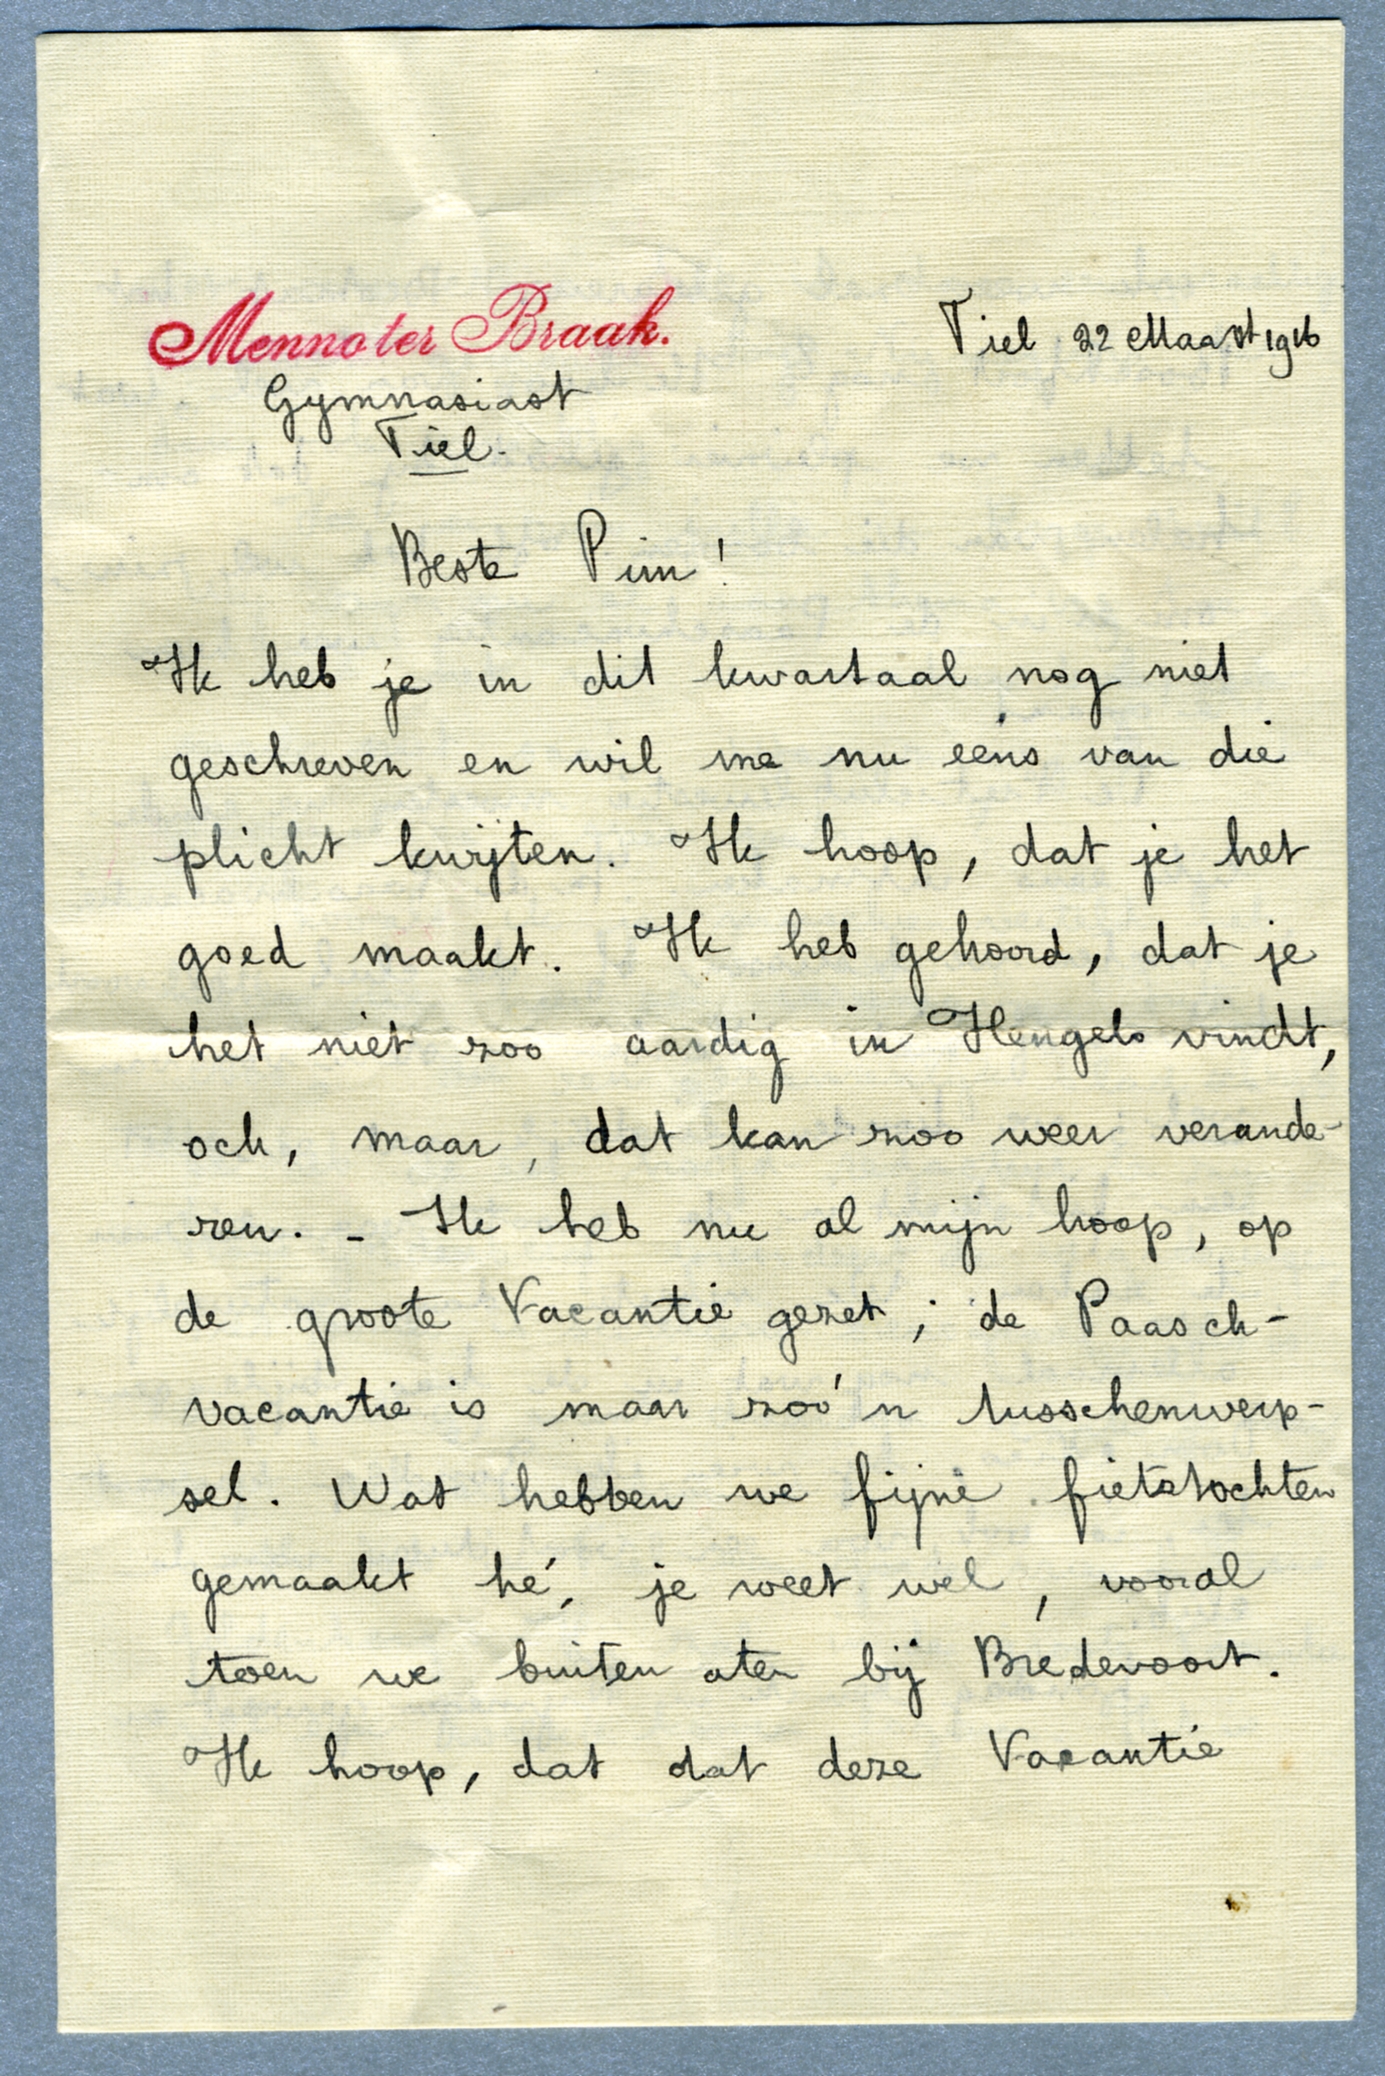 Menno ter Braak.
Tiel 22 Maart 1916
Gymnasiast
Tiel.
Beste Pim!
Ik heb je in dit kwartaal nog niet
geschreven en wil me nu eens van die
plicht kwijten. Ik hoop, dat je het
goed maakt. Ik heb gehoord, dat je
het niet zoo aardig in Hengelo vindt,
och, maar, dat kan zoo weer verande-
ren. - Ik heb nu al mijn hoop, op
de groote Vacantie gezet; de Paasch-
vacantie is maar zoo'n tusschenwerp-
sel. Wat hebben we fijne fietstochten
gemaakt hé, je weet wel, vooral
toen we buiten aten bij Bredevoort.
Ik hoop, dat dat deze Vacantie